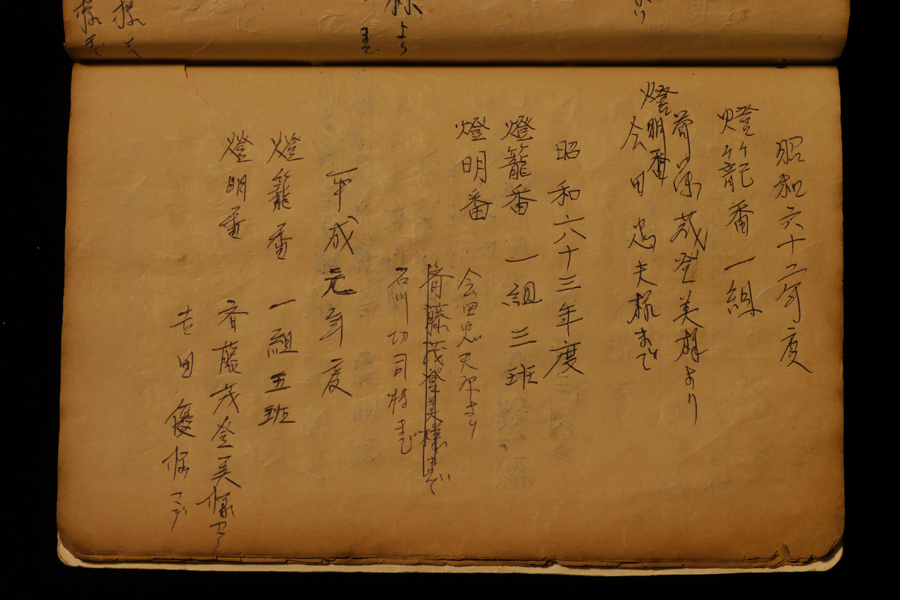 昭和六十二年度
燈篭番 一組
齊藤茂登美様より
燈明番
今田忠夫様まで
昭和六十三年度
燈籠番 一組三班
燈明番
今田忠夫様より
齊藤茂登美様まで
石川功司様まで
平成元年度
燈籠番 一組五班
燈明番
斉藤茂登美様ヨリ
吉田優様マデ